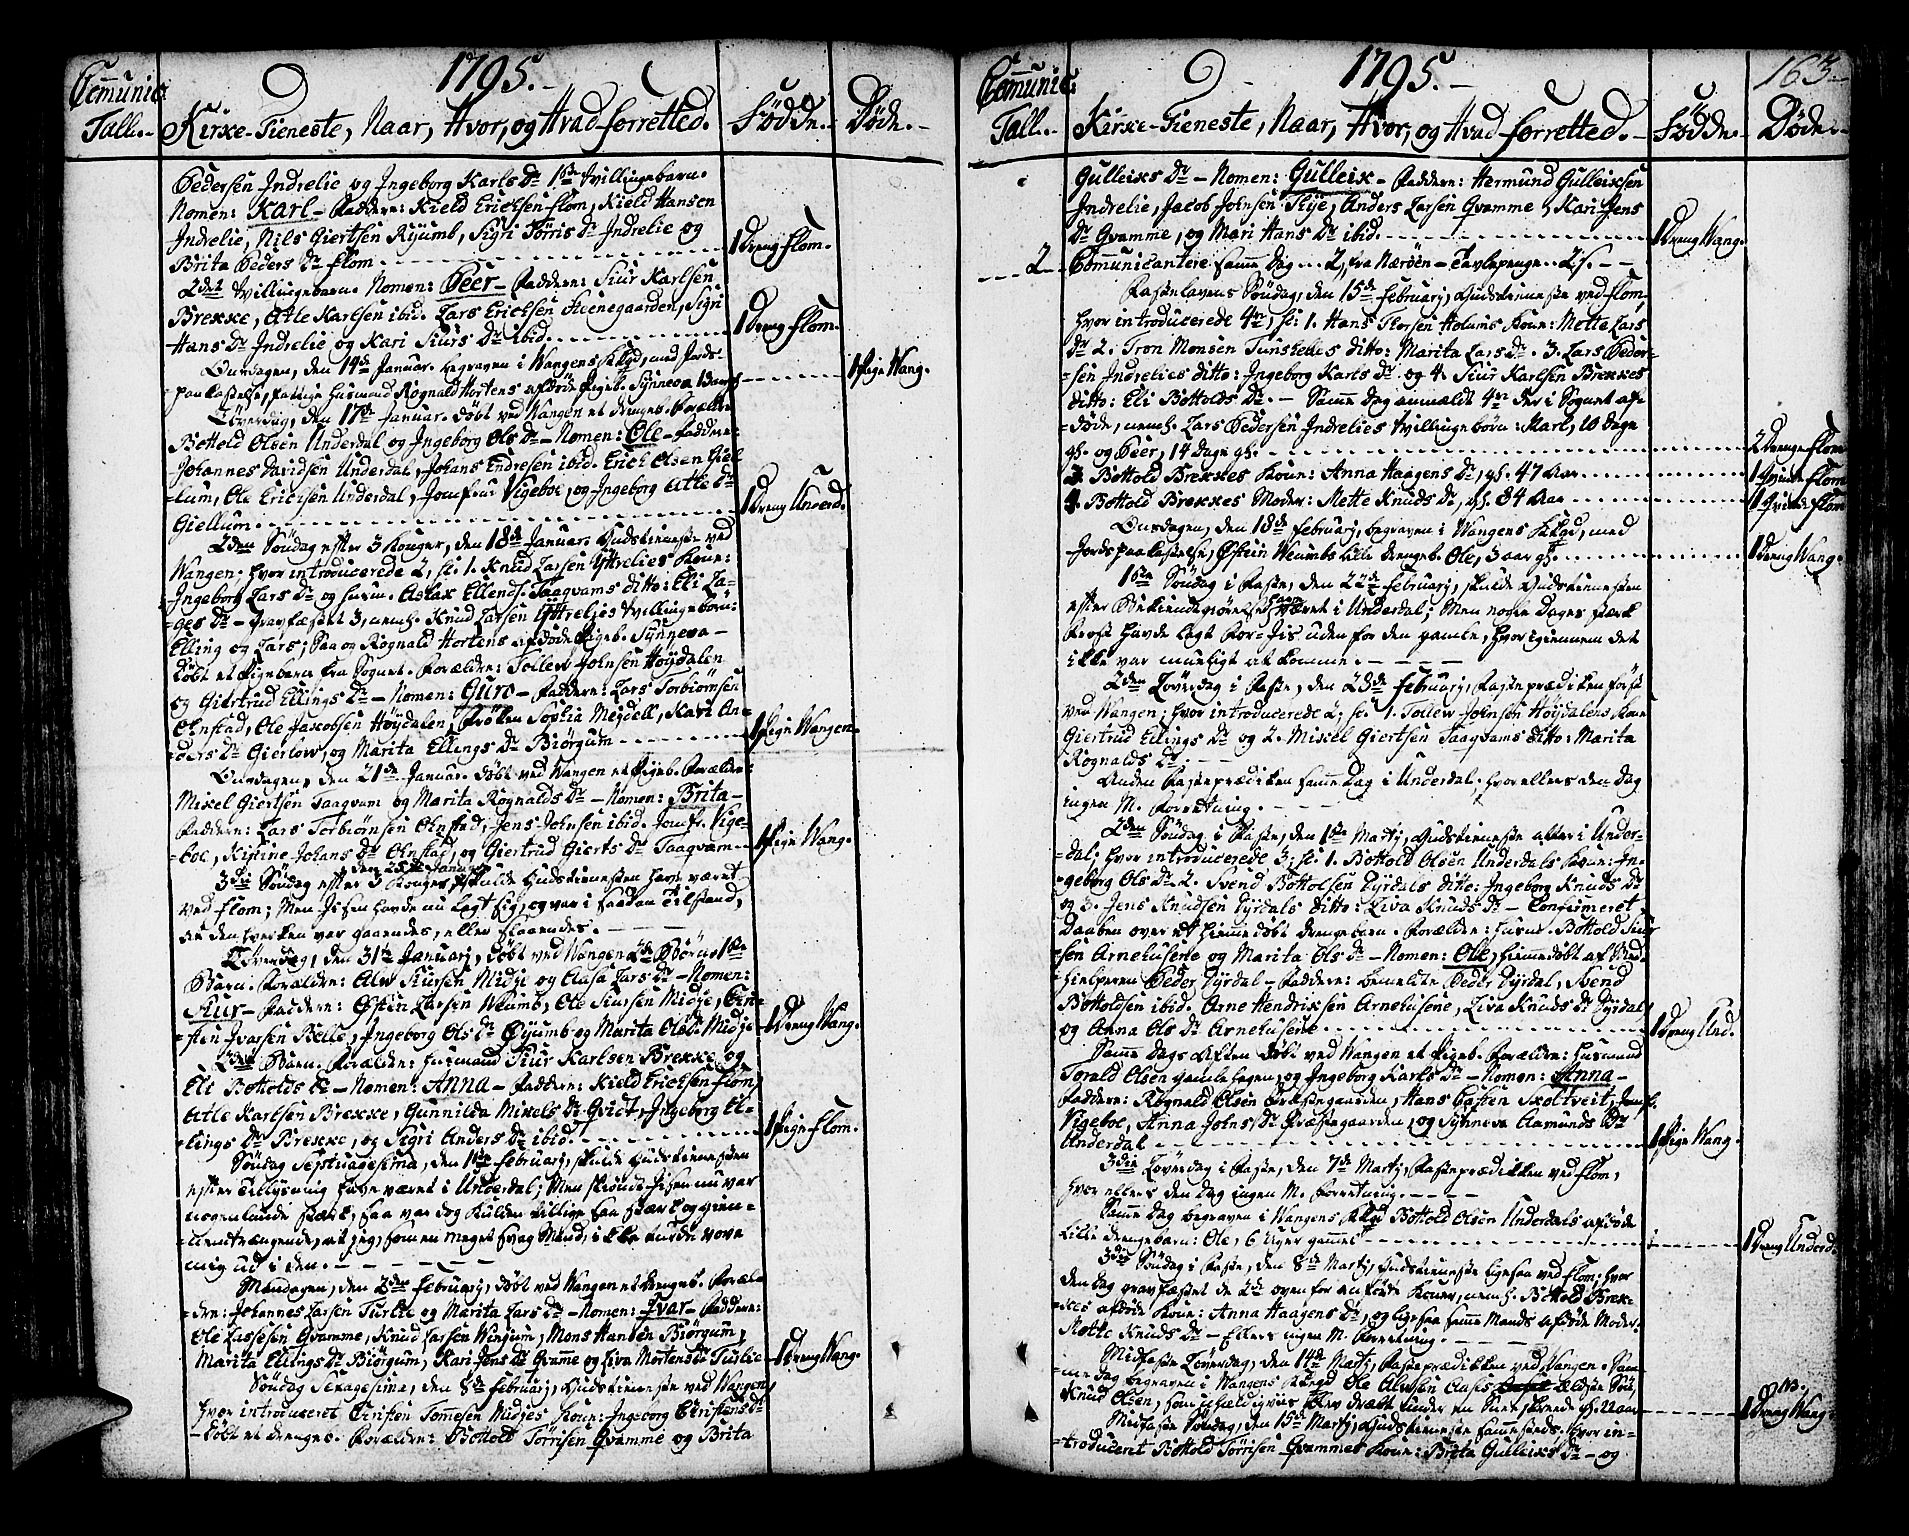 1795.
Com̄unic: Tall.- Kirke-Tieneste, Naar, Hvor, og Hvad forretted. Födde.- Døde.-
Pedersen Indrelie og Ingeborg Karls Dr 1ste tvillingebarn.
Nomen: Karl - Faddere: Kield Ericksen Flom, Kield Hansen
Indrelie, Nils Giertsen Ryumb, Sigri Tørris Dr Indrelie og
Brita Peders Dr Flom 1 Dreng Flom.
2det tvillingebarn. Nomen: Peer - Faddere: Siur Karlsen
Brekke, Atle Karlsen ibid. Lars Ericksen Steenegaarden, Sigri
Hans Dr Indrelie og Kari Siurs Dr ibid. 1 Dreng Flom.
Onsdagen, den 14de Januar. begraven i Wangens Kkgd, med Jords-
paakastelse, fattige Huusmand Rognald Hortens afdøde Pigeb. Synneva 1 Pige Wang.
Löverdag, den 17de Januar. döbt ved Wangen et drengeb. Forældre
Bottold Olsen Underdal og Ingeborg Ols Dr - Nomen: Ole - Faddere:
Johannes Davidsen Underdal, Johans Endresen ibid. Erick Olsen Giel
-lum, Ole Ericksen Underdal, Jomfrue Vigeboe, og Ingeborg Atle Dr
Giellum. 1 Dreng Underd.
2den Söndag efter 3 Konger, den 18de Januar. Gudstieneste ved
Wangen; hvor introducerede 2, sc: 1. Knud Larsen Yttrelies Kone:
Ingeborg Lars Dr og Huusm. Aslak Ellends. Taaqvams ditto: Eli La-
-ges Dr - Gravfæstet 3, neml. Knud Larsen Yttrelies tvillingebörn:
Elling og Lars; Saa og Rognald Hortens afdöde Pigeb. Synneva -
Döbt et Pigebarn fra Sognet. Forældre: Tollew Johnsen Höydalen
og Giertrud Ellings Dr - Nomen: Guro - Faddere: Lars Torbiörnsen
Ohnstad, Ole Jacobsen Höydalen, Fröken Sophia Meydell, Kari An-
-ders Dr Gierlow, og Marita Ellings Dr Biörgum 1 Pige Wangen.
Onsdagen, den 21de Januar. döbt ved Wangen et Pigeb. Forældre
Mikel Giertsen Taaqvam og Marita Rognalds Dr - Nomen: Brita -
Faddere: Lars Torbiörnsen Ohnstad, Jens Johnsen ibid. Jomfr. Vige-
boe, Kistine Johans Dr Ohnstad, og Giertrud Gierts Dr Taaqvam 1 Pige Wang.
3die Söndag efter 3 Konger, den 25de Januar skulde Gudstienesten have været
ved Flom; Men Isen havde nu lagt sig, og var i saadan Tilstand,
at den hverken var gaaendes, eller flaaendes.
Löverdag, den 31te Januarj, döbt ved Wangen 2de Börn. 1ste
Barn. Forældre: Alw Siursen Midje og Aasa Lars Dr - Nomen:
Siur - Faddere: Östen Larsen Weumb, Ole Siursen Midje, Cri-
-sten Ivarsen Kelle, Ingeborg Ols Dr Ryumb og Marita Ols Dr Midje 1 Dreng Wang.
2det Barn. Forældre: Huusmand Siur Karlsen Brekke og
Eli Bottolds Dr - Nomen: Anna - Faddere: Kield Ericksen Flom
Atle Karlsen Brekke, Gunnilda Mikels Dr Qvidt, Ingeborg El-
-lings Dr Brekke, og Sigri Anders Dr ibid. 1 Pige Flom.
Söndag Septuagesima, den 1ste Februarj, skulde Gudstienesten
efter Tillysning have været i Underdal; Men skiöndt Isen nu var
nogenlunde stærk, saa var dog Kulden tillige saa stærk og gien-
-nemtrængende, at jeg, som en meget svag Mand, ikke turde vove
mig ud i den.
Mandagen, den 2den Februarj, döbt ved Wangen et drengeb. Foræl-
-dre: Johannes Larsen Turlie og Marita Lars Dr - Nomen: Ivar - Faddere:
Ole Lassesen Qvamme, Knud Larsen Winjum, Mons Hansen Biörgum,
Marita Ellings Dr Biörgum, Kari Jens Dr Qvamme og Liva Mortens Dr Turlie 1 Dreng Wang.
Söndag Sexagesima, den 8de Februarj, Gudstieneste ved Wangen,
hvor introduceret Cristen Tommesen Midjes Kone: Ingeborg Cristens Dr
- döbt et drengeb. Forældre: Bottold Törrisen Qvamme og Brita
1795. 163.
Com̄unic: Tall.- Kirke-Tieneste, Naar, Hvor, og Hvad forretted.- Födde.- Døde.-
Gulleiks Dr - Nomen: Gulleik - Faddere: Hermund Gulleiksen
Indrelie, Jacob Johnsen Skye, Anders Larsen Qvamme, Kari Jens
Dr Qvamme, og Mari Hans Dr ibid. 1 Dreng Wang.
2 Com̄unicantere sam̄e dag 2, fra Neröen - Tavlepenge 2 s.
Fastelavens Söndag, den 15de Februarj, Gudstieneste ved Flom,
hvor introducerede 4re, sc: 1. Hans Thorsen Holums Kone: Mette Lars
Dr 2. Tron Monsen Tunshelles ditto: Marita Lars Dr. 3. Lars Peder-
-sen Indrelies ditto: Ingeborg Karls Dr og 4. Siur Karlsen Brekkes
ditto: Eli Bottolds Dr. - Samme dag anmældt 4re her i Sognet af-
-döde, neml. Lars Pedersen Indrelies tvillingebörn: Karl, 10 dage
gl. og Peer, 14 dage gl. 2 Drenge Flom
3. Bottold Brekkes Kone: Anna Haagens Dr, gl. 47 Aar 1 Qvinde Flom
4. Bottold Brekkes Moder: Mette Knuds Dr, gl. 84 Aar 1 Qvinde Flom
Onsdagen, den 18de Februarj, begraven i Wangens Kkgd, med
Jordspaakastelse, Östein Weumbs lille drengeb. Ole, 3 aar gl. 1 Dreng Wang.
1ste Söndag i Faste, den 22de Februarj, skulde Gudstienesten
efter Bekiendtgiörelse have været i Underdal; Men nogle dages stærk
Frost havde lagt For-Iis uden for den gamle, hvor igiennem det
ikke var mueligt at komme.
2den Löverdag i Faste, den 28de Februarj, Fasteprædiken först
ved Wangen; hvor introducerede 2; sc: 1. Tollew Johnsen Höydalens Kone
Giertrud Ellings Dr og 2. Mikel Giertsen Taaqvams ditto: Marita
Rognalds Dr.
Anden Fasteprædiken samme dag i Underdal, hvor ellers den dag
ingen M. Forretning.
2den Söndag i Faste, den 1ste Martj, Gudstieneste atter i Under-
-dal; hvor introducerede 3; sc: 1. Bottold Olsen Underdals Kone: In-
-geborg Ols Dr 2. Svend Bottolsen Dyrdals ditto: Ingeborg Knuds Dr
og 3. Jens Knudsen Dyrdals ditto: Liva Knuds Dr - Confirmeret
Daaben over et hiemmedöbt drengebarn. Forældre: Huusm. Bottold Siur-
-sen Arnehusene og Marita Ols Dr - Nomen: Ole, hiemmedöbt af Med-
-hielperen Peder Dyrdal - Faddere: bemeldte Peder Dyrdal, Svend
Bottoldsen ibid. Arne Hendriksen Arnehusene, Liva Knuds Dr Dyrdal
og Anna Ols Dr Arnehusene 1 Dreng Und.
Samme dags Aften döbt ved Wangen et Pigeb. Forældre: Huusmand
Torald Olsen Gamlehagen, og Ingeborg Karls Dr - Nomen: Anna -
Faddere: Rognald Olsen Præstegaarden, Hans Casten Skoltveit, Jomf.
Vigeboe, Anna Johns Dr Præstegaarden, og Synneva Aamunds Dr
Underdal 1 Pige Wang.
3die Löverdag i Faste, den 7de Martj, Fasteprædiken ved Flom,
hvor ellers den dag ingen M. Forretning.
Samme dag begraven i Wangens Kkgd Bottold Olsen Underdals afdöde
lille drengebarn: Ole, 6 Uger gammel 1 Dreng Underd.
3die Söndag i Faste, den 8de Martj, Gudstieneste ligesaa ved Flom; hvor
den dag gravfæstet de 2de ovenfor anförte Koner, neml. Bottold Brek-
-kes afdöde Kone: Anna Haagens Dr, og ligesaa samme Mands afdöde Moder:
Mette Knuds Dr - Ellers ingen M. Forretning.
Midfaste Löverdag, den 14de Martj, Fasteprædiken ved Wangen. Sam-
-me dag begraven i Wangens Kkgd Ole Alwsen Aasis ældste Sön,
Knud Olsen, som uheldigviis blev dræbt under en Snee-skreede gl. 11 aar 1 Dreng Wang.
Midfaste Söndag, den 15de Martj, Gudstieneste sammesteds. Hvor in-
-troduceret Bottold Törrisen Qvammes Kone: Brita Gulleiks Dr - og